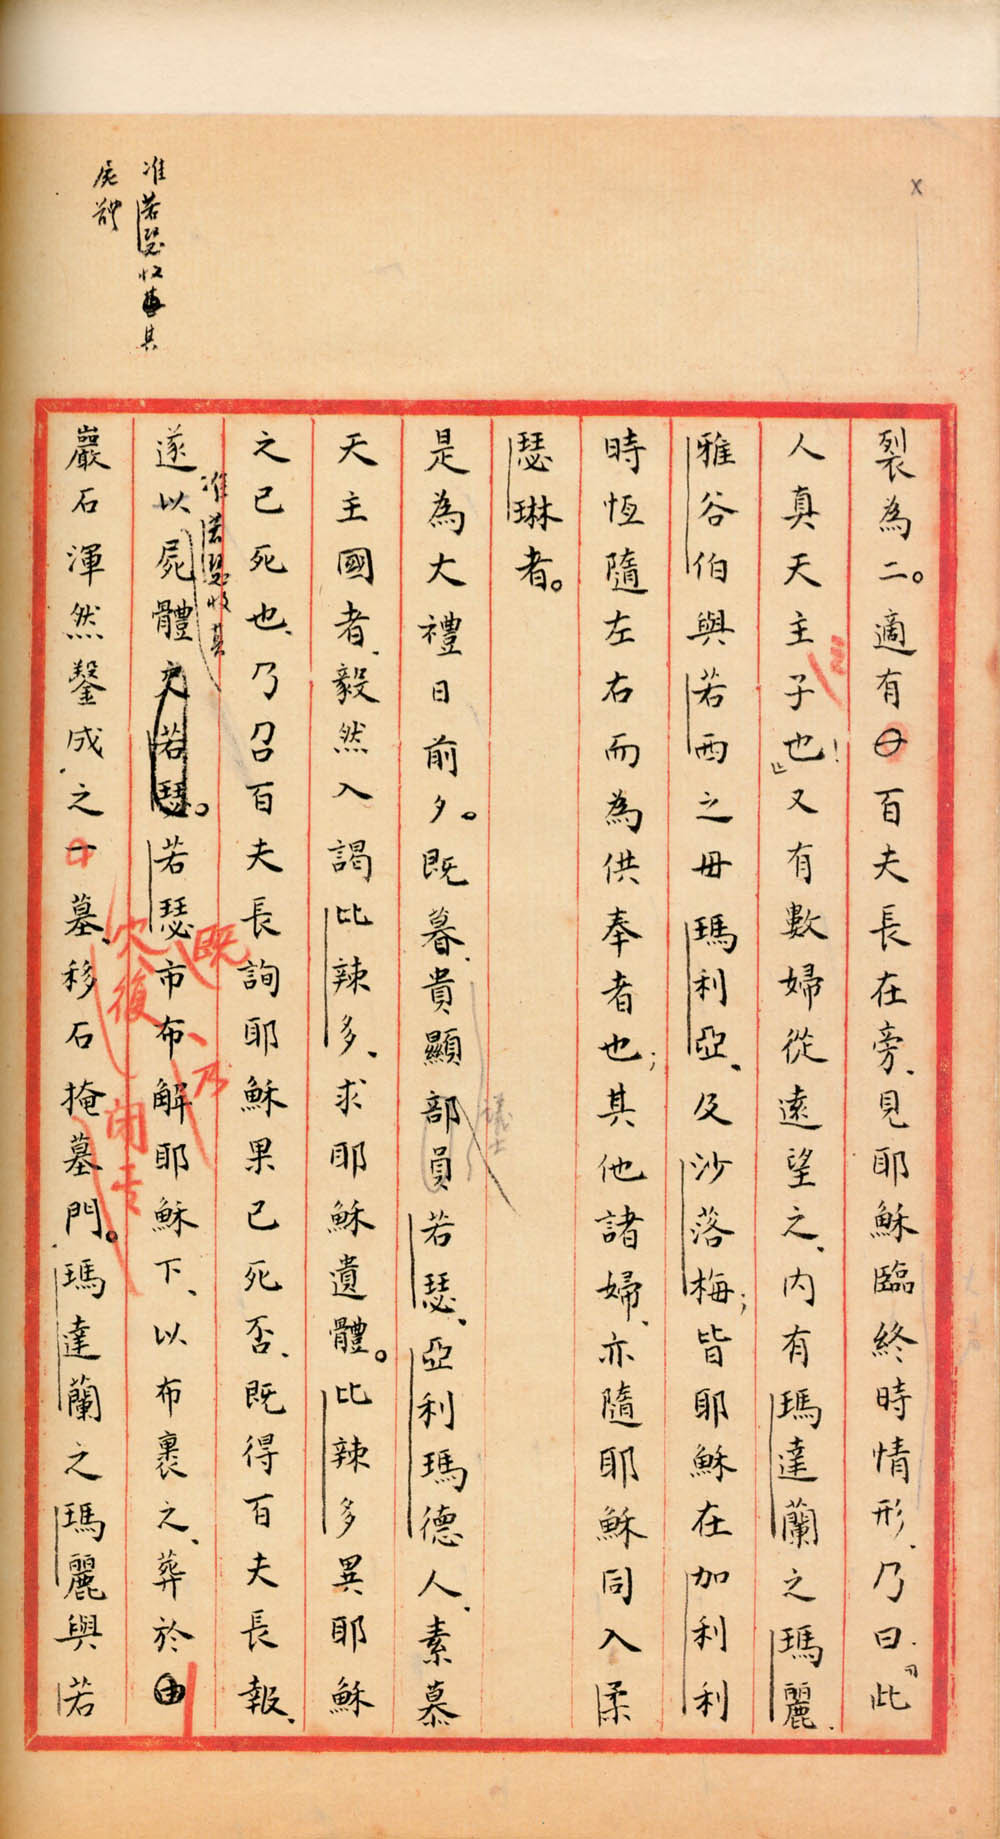 裂為二。適有百夫長在旁、見耶穌臨終時情形、乃曰、「此
人真天主子也！」又有數婦從遠望之、内有瑪達蘭之瑪麗、
雅谷伯與若西之毋瑪利亞、及沙落梅；皆耶穌在加利利
時恆隨左右而為供奉者也；其他諸婦、亦隨耶穌同入柔
瑟琳者。
是為大禮日前夕。既暮、貴顯部員若瑟、亞利瑪德人、素慕
議士
天主國者、毅然入謁比辣多、求耶穌遺體。比辣多異耶穌
之已死也、乃召百夫長詢耶穌果已死否、既得百夫長報、
准若瑟收其
遂以屍體交若瑟。若瑟市布解耶穌下、以布裹之、葬於
既 乃
巖石渾然鑿成之一墓、移石掩墓門。瑪達蘭之瑪麗與若
穴復 閉
准若瑟收其
屍